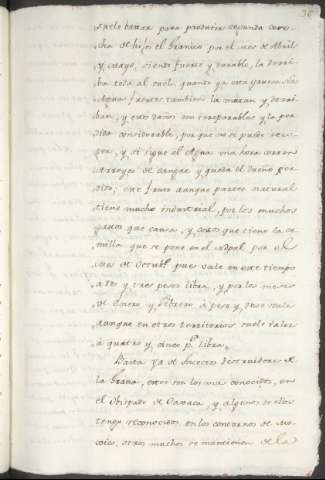 suele tomar para producir segunda cose-
cha de hijos el Granico por el mes de Abril
y mayo, siendo fuerte y durable, la derri-
ba toda al suelo, quando ya esta gruesa las
Aguas fuertes tambien la matan y derri-
ban, y estos daños son irreparables y la per-
dida considerable, por que no se puede reco-
jer, y si sigue el Agua una hora corren
Arroyos de sangre y queda el Dueño per-
dido; este fruto aunque parece natural
tiene mucho industrial, por los muchos
gastos que causa, y costos que tiene la se-
milla que se pone en el Nopal por el
mes de Octubre pues vale en este tiempo
a dos y tres pesos libra, y por los meses
de Enero y Febrero, a peso y doze reales
aunque en otros territorios suele valer
à quatro y cinco ps. libra.
Basta ya de Insectos destruidores de
la Grana, estos son los mas conocidos, en
el Obispado de Oaxaca, y algunos de ellos
tengo reconocidos en los contornos de
otros muchos se mantienen de la